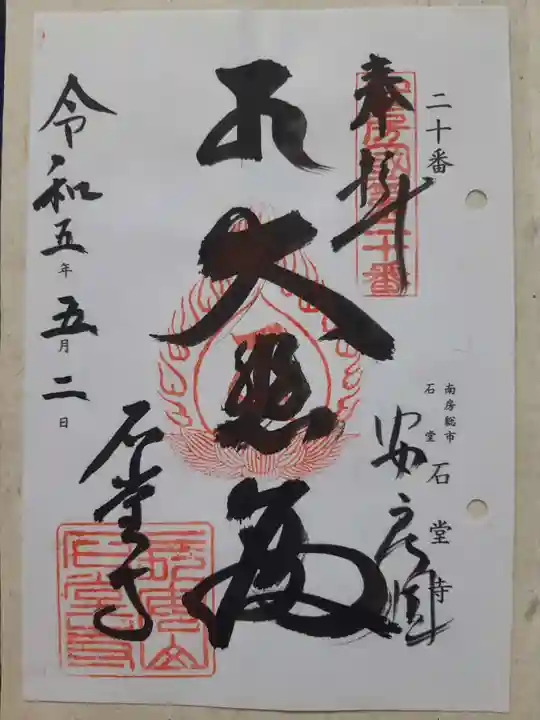 二十番
奉拝
安房國第二十番
南房総市
石堂
石堂寺
安房国
大悲殿
石堂寺
令和五年五月二日